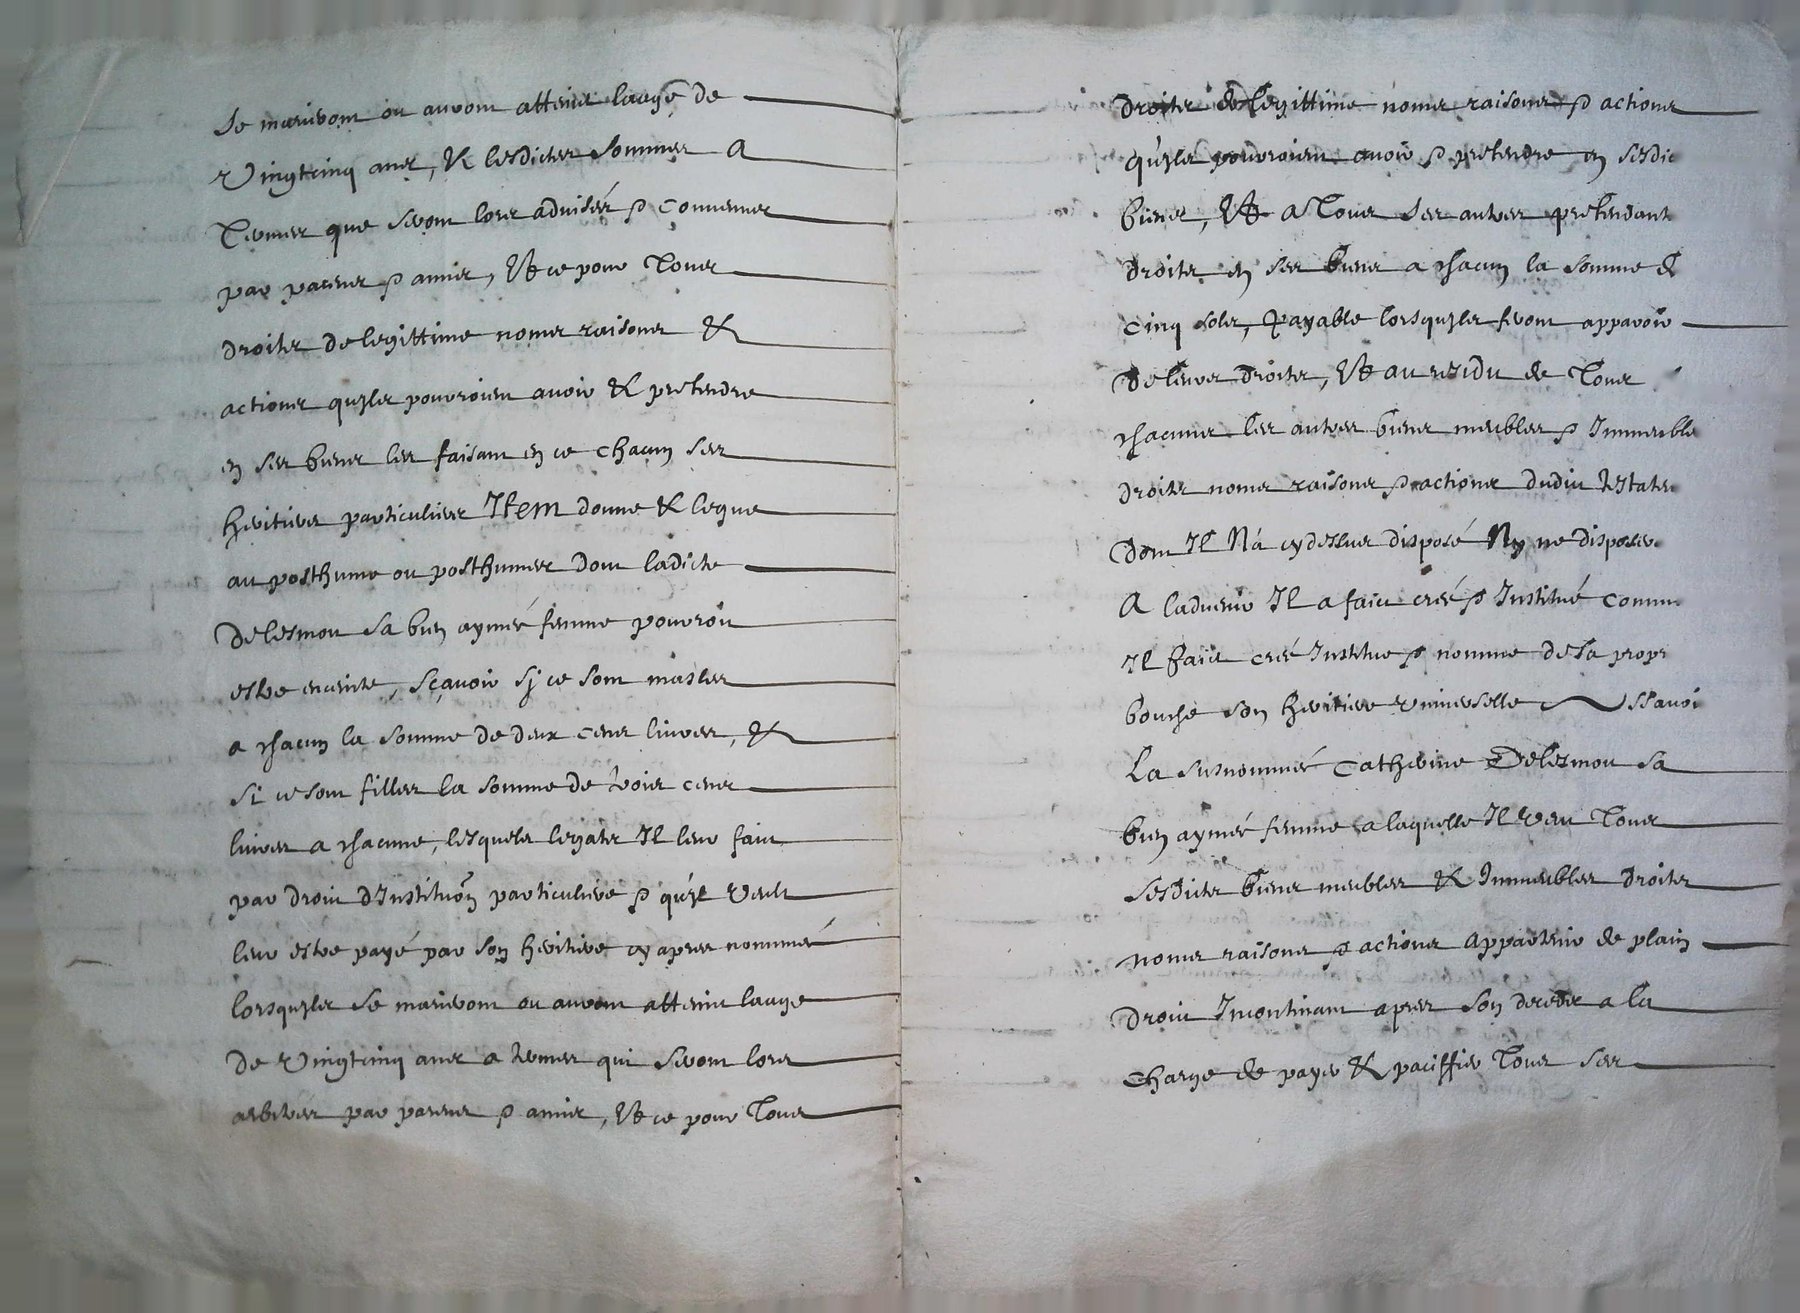 se marieront ou auront atteint laage de
Vingtcinq ans, & lesdictes sommes a
Termes que seront lors advisés & convenus
par parens & amis, Et ce pour Tous
droits de legittime noms raisons &
actions quils pourroient avoir & pretendre
en ses biens les faisant en ce chacun ses
heritiers particuliers Item donne & legue
au posthume ou posthumes dont ladicte
Delesmon sa bien aymée femme pourroit
estre enceinte, sçavoir sy ce sont masles
a chacun la somme de deux cens livres, &
si ce sont filles la somme de trois cens
livres a chacune, lesquels legats Il leur faict
par droict d'Institution particuliere & quil veult
leur estre payé par son heritiere cy apres nommée
lorsquils se marieront ou auront atteint laage
de Vingtcinq ans a termes qui seront lors
arbitrés par parens & amis, Et ce pour Tous
droits de legittime noms raisons & actions
quils pourroient avoir & pretendre en sesdic
biens, Et a Tous ses autres pretendant
droits en ses biens a chacun la somme de
cinq sols, payable lorsquils feront apparoir
de leurs droits, Et au residu de Tous
chacuns les autres biens meubles & Immeuble
droits noms raisons & actions dudit testate
dont Il N'a cy dessus disposé Ny ne dispose
A ladvenir Il a faict creé & Institué comm
Il faict creé Institue & nomme de sa propr
bouche son heritiere universelle Assavoi
La susnommée Catherine Delesmon sa
bien aymée femme a laquelle Il veut Tous
sesdicts biens meubles & Immeubles droits
noms raisons & actions appartenir de plain
droict Incontinant apres son deceds a la
charge de payer & paciffier Tous ses